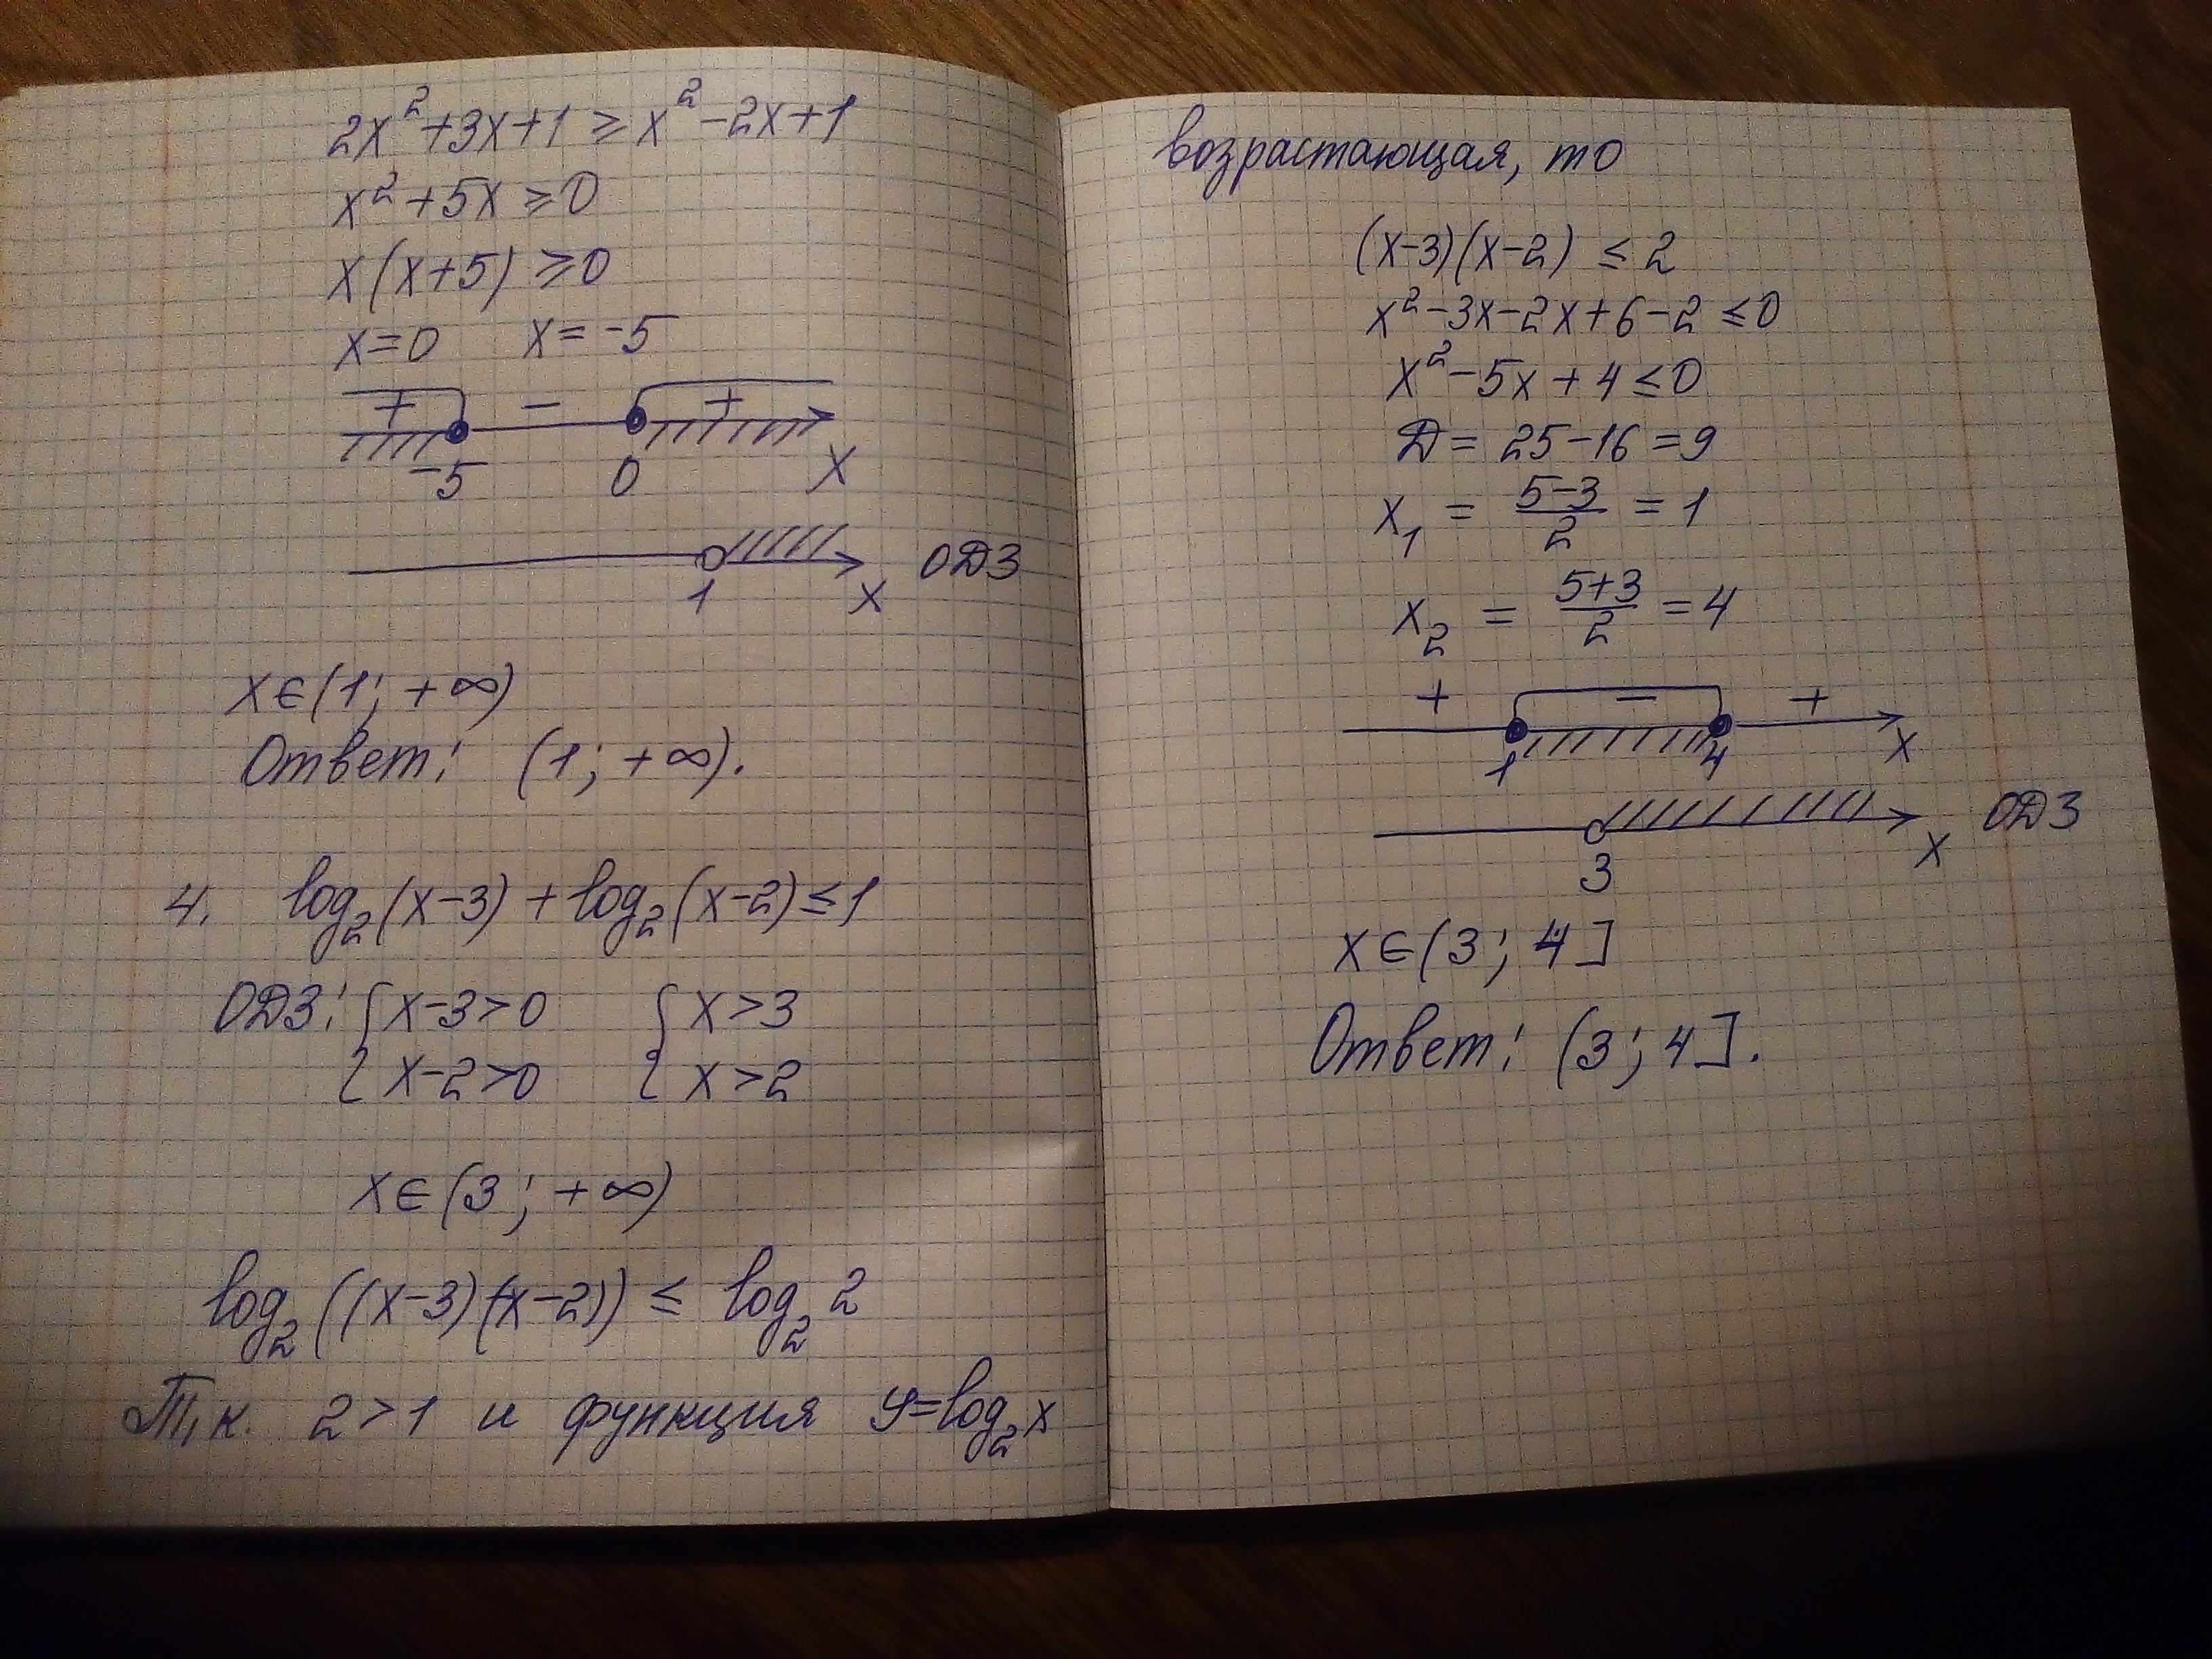 2x²+3x+1 ≥ x²-2x+1
x²+5x ≥ 0
x(x+5) ≥ 0
x=0 x=-5
+ - +
-5 0 x
ОДЗ
1 x
x∈(1; +∞)
Ответ: (1; +∞).
4. log₂(x-3) + log₂(x-2) ≤ 1
ОДЗ: { x-3>0 { x>3
x-2>0 x>2
x∈(3; +∞)
log₂((x-3)(x-2)) ≤ log₂2
Т.к. 2>1 и функция y=log₂x
возрастающая, то
(x-3)(x-2) ≤ 2
x²-3x-2x+6-2 ≤ 0
x²-5x+4 ≤ 0
D = 25-16 = 9
x₁ = (5-3)/2 = 1
x₂ = (5+3)/2 = 4
+ - +
1 4 x
ОДЗ
3 x
x∈(3; 4]
Ответ: (3; 4].